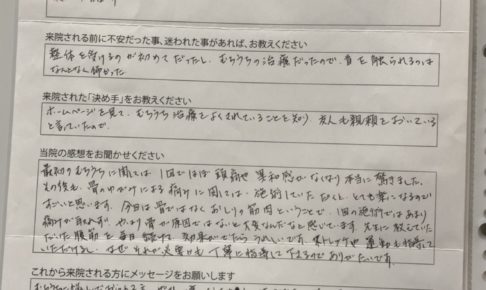 来院される前に不安だった事、迷われた事があれば、お教えください
整体を受けるのが初めてだったし、むちうちの治療だったので、首を触られるのは
なんとなく怖かった
来院された「決め手」をお教えください
ホームページを見て、むちうち治療をよくされていることを知り、友人も親類をおいている
と言っていたので
当院の感想をお聞かせください
最初のむちうちに関しては、1回でほぼ頭痛や異和感がなくなり本当に驚きました。
その後も、骨のゆがみによる痛みに関しては、施術していただくと、とても楽になるので
すごいと思います。今回は骨ではなくおしりの筋肉ということで、1回の施術ではあまり
痛みが取れず、やはり骨が原因ではないと大変なんだなと感じています。先生に教えていた
だいた腹筋を毎日続けて、効果がでたらうれしいです。
運動も指導して
いただけるし、なぜそれが必要かも丁寧に指導して下さるのでありがたいです。
これから来院される方にメッセージをお願いします